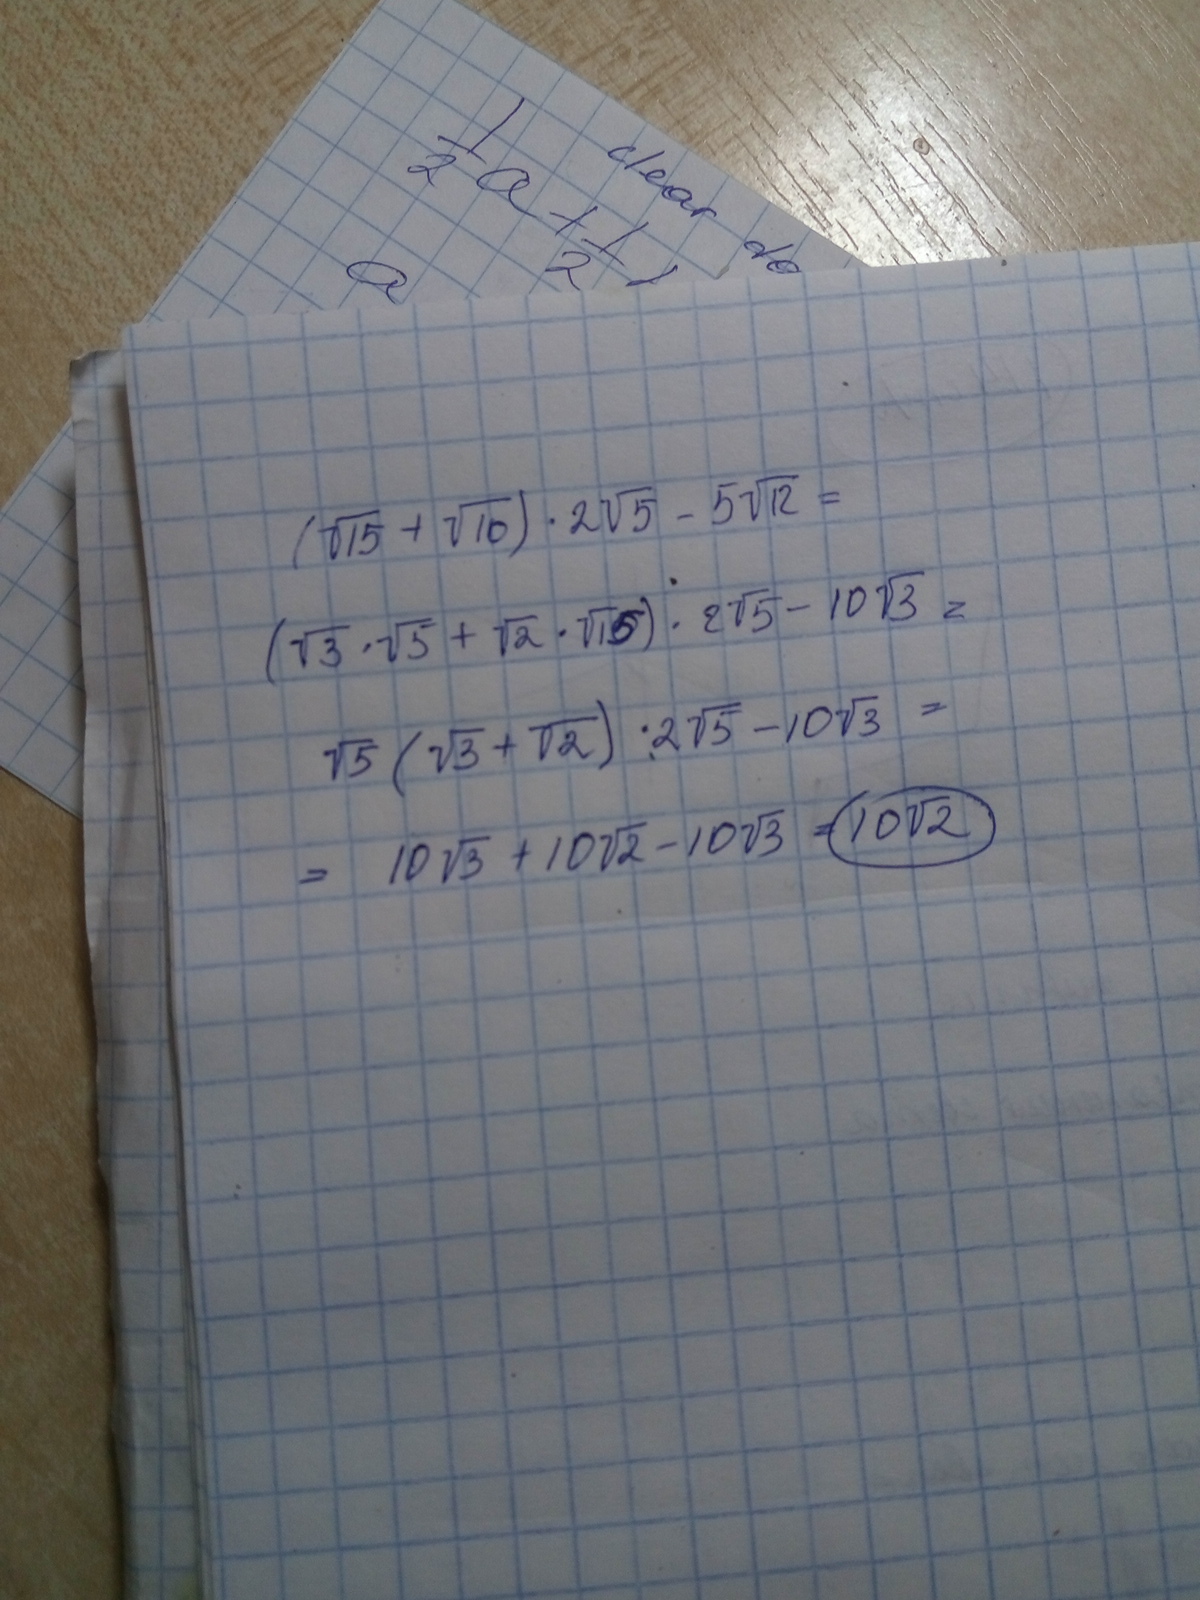 clear do
1/2 a + 1/2
a
(√15 + √10) · 2√5 - 5√12 =
(√3 · √5 + √2 · √5) · 2√5 - 10√3 =
√5 (√3 + √2) · 2√5 - 10√3 =
= 10√3 + 10√2 - 10√3 = 10√2